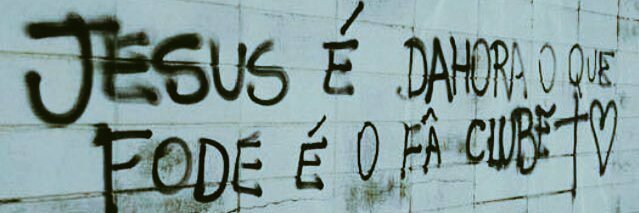 JESUS É DAHORA O QUE
FODE É O FÂ CLUBE